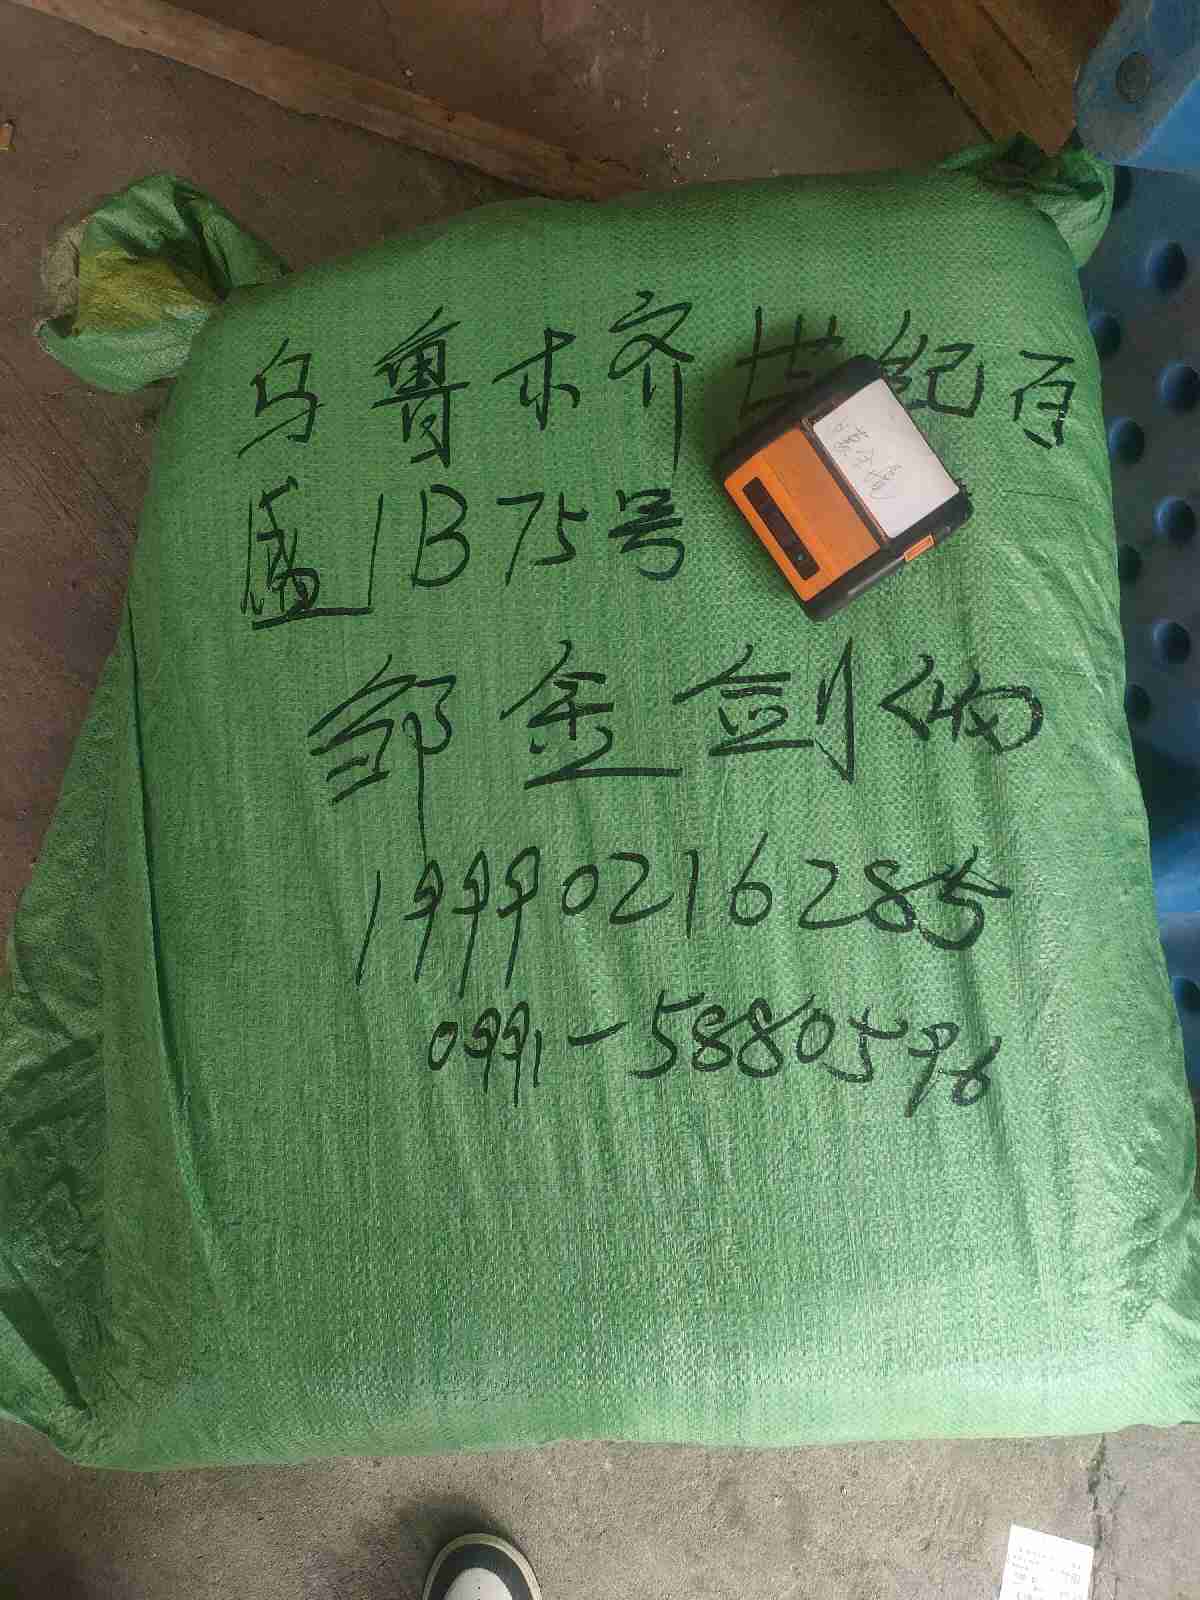 乌鲁木齐世纪百
盛1B75号
邹金剑收
19990216285
0991-5880596